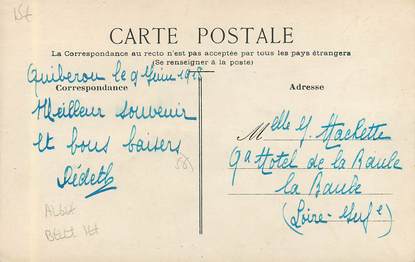 CARTE POSTALE
La Correspondance au recto n'est pas acceptée par tous les pays étrangers
(Se renseigner à la poste)
Quiberon le 9 Juin 1918
Correspondance
Adresse
Meilleur souvenir
et bons baisers
Melle Y. Hackette
Gd Hotel de la Baule
La Baule
(Loire-Infre)